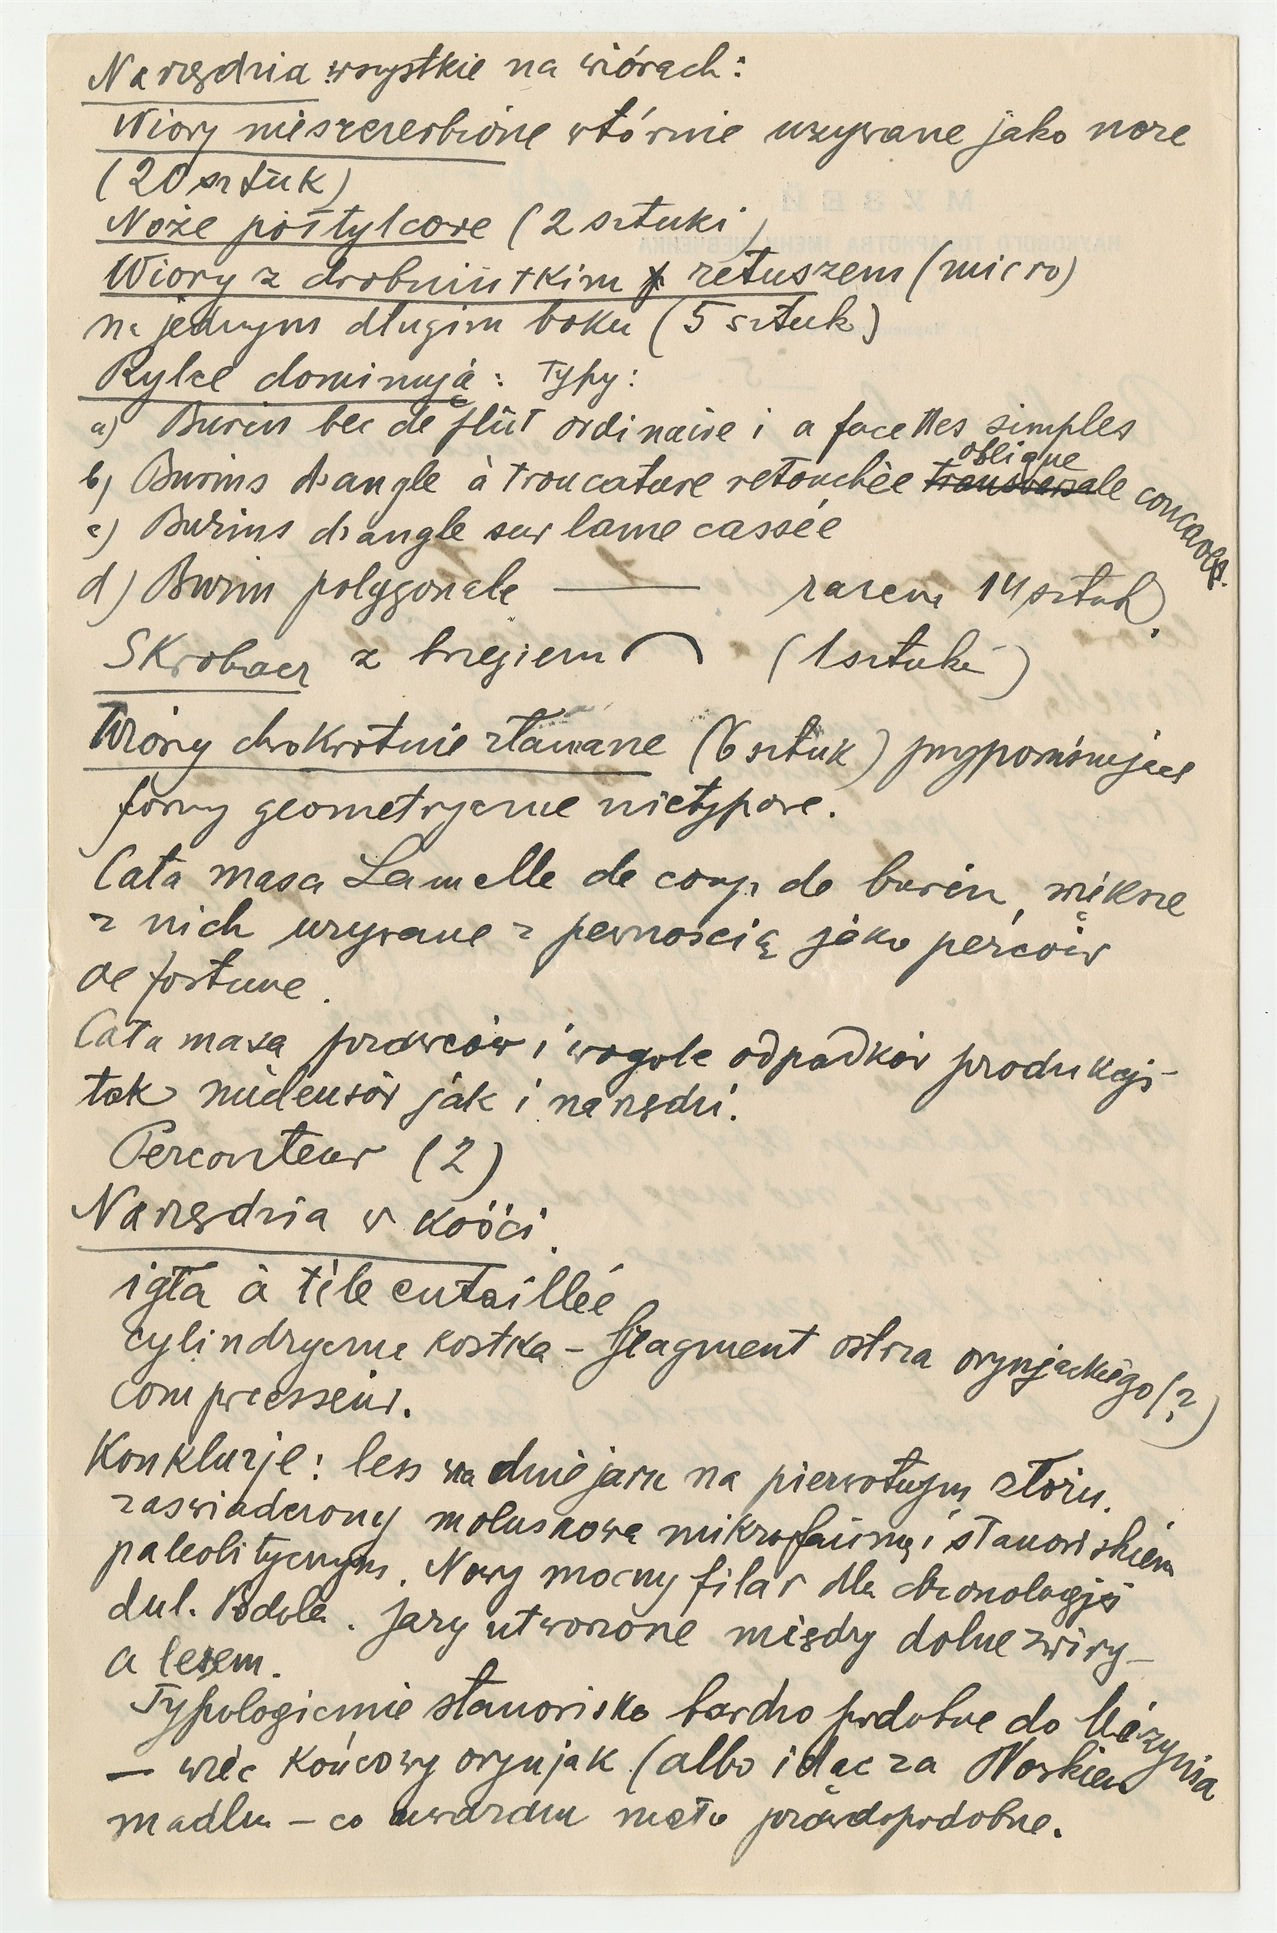 Narzędzia wszystkie na wiórach:
Wiory nieszczerbione wtórnie uzywane jako noze
(20 sztuk)
Noże półtylcowe (2 sztuki)
Wiory z drobniutkim retuszem (micro)
na jednym długim boku (5 sztuk)
Rylce dominują: Typy:
a) Burin bec de flût ordinaire i a facettes simples
oblique
b) Burins d'angle à troncature retouchée transversale concave.
c) Burins d'angle sur lame cassée
d) Burin polygonale — razem 14 sztuk.
Skrobacz z brzegiem (1 sztuka)
Wióry dwokrotnie złamane (6 sztuk) przypominające
formy geometryczne nietypowe.
Cała masa Lamelle de coup de burin, większe
z nich uzywane z pewnoscią jako percoir
de fortune.
Cała masa i wogole odpadków produkcji
tak nucleusów jak i narzędzi.
Percouteur (2)
Narzędzia w kości.
igła à tête entaillée
cylindryczna kostka – fragment ostrza orynjackiego (?)
compresseur.
Konkluzje: less na dnie jaru na pierwotnym złożu.
zaswiadczony moluskową mikrofauną i stanowiskiem
paleolitycznym. Nowy mocny filar dla chronologji
dul. Podola. Jary utworzone między dolne zwiry –
a lesem.
Typologicznie stanowisko bardzo podobne do Mézynia
— więc końcowy orynjak (albo idąc za
madlen – co uwazam mało prawdopodobne.